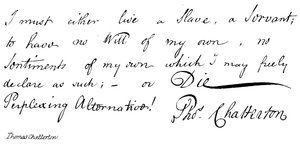 I must either live a Slave, a Servant;
to have no Will of my own, no
Sentiments of my own which I may freely
declare as such; — or Die —
Perplexing Alternative!
Thos. Chatterton
Thomas Chatterton